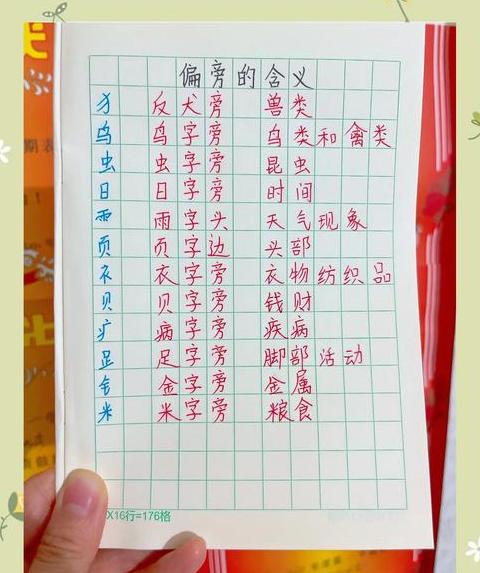 偏旁的含义
犭 反犬旁 兽类
鸟 鸟字旁 鸟类和禽类
虫 虫字旁 昆虫
日 日字旁 时间
雨 雨字头 天气现象
页 页字边 头部
衤 衣字旁 衣物纺织品
贝 贝字旁 钱财
疒 病字旁 疾病
足 足字旁 脚部活动
钅 金字旁 金属
米 米字旁 粮食
X16行=176格